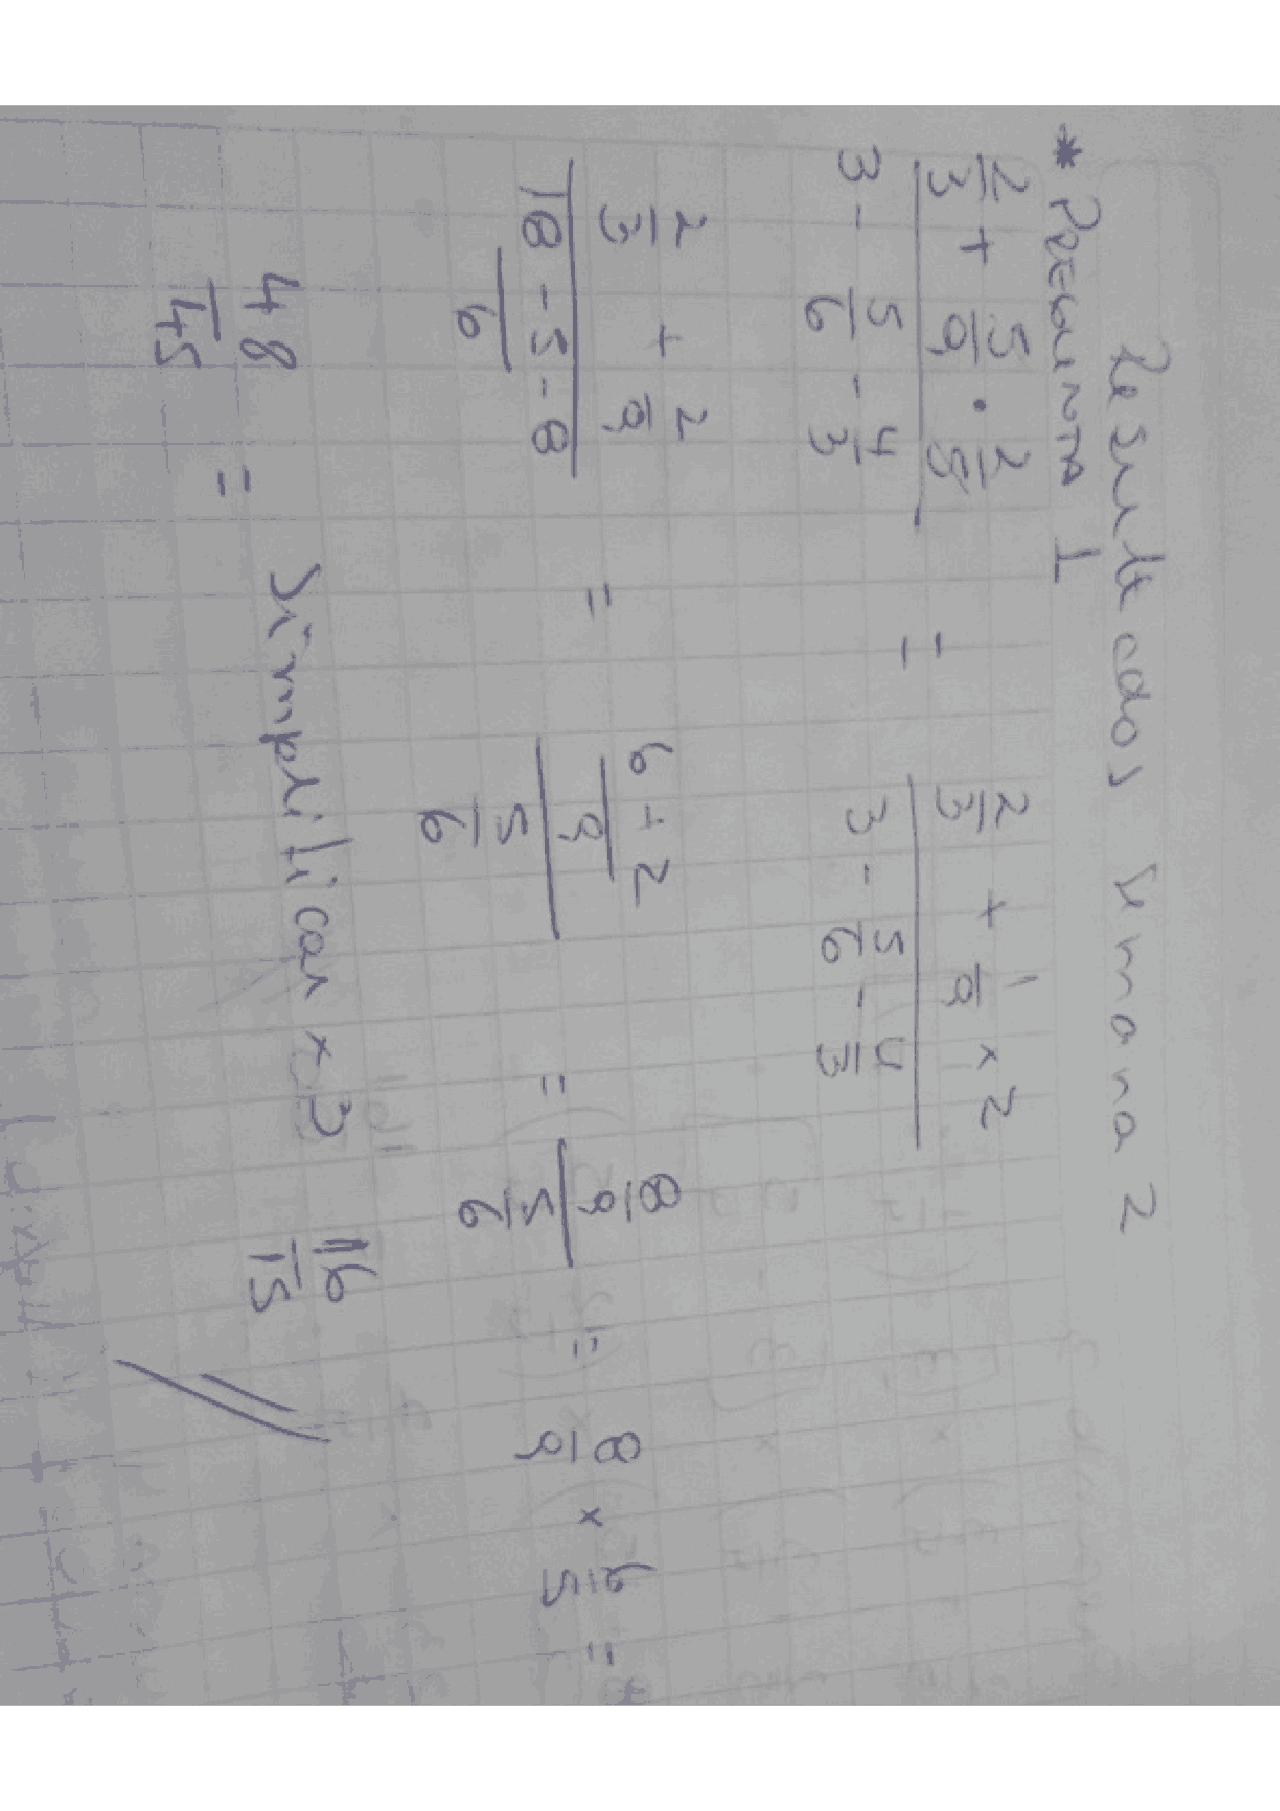 Resultados semana 2
* PREGUNTA 1
2/3 + 5/9 · 2/5 / 3 - 5/6 - 4/3 = 2/3 + 1/9 x 2 / 3 - 5/6 - 4/3
2/3 + 2/9 / 18 - 5 - 8 / 6 = 6 + 2 / 9 / 5/6 = 8/9 / 5/6 = 8/9 x 6/5 =
48/45 = Simplificar x 3 16/15